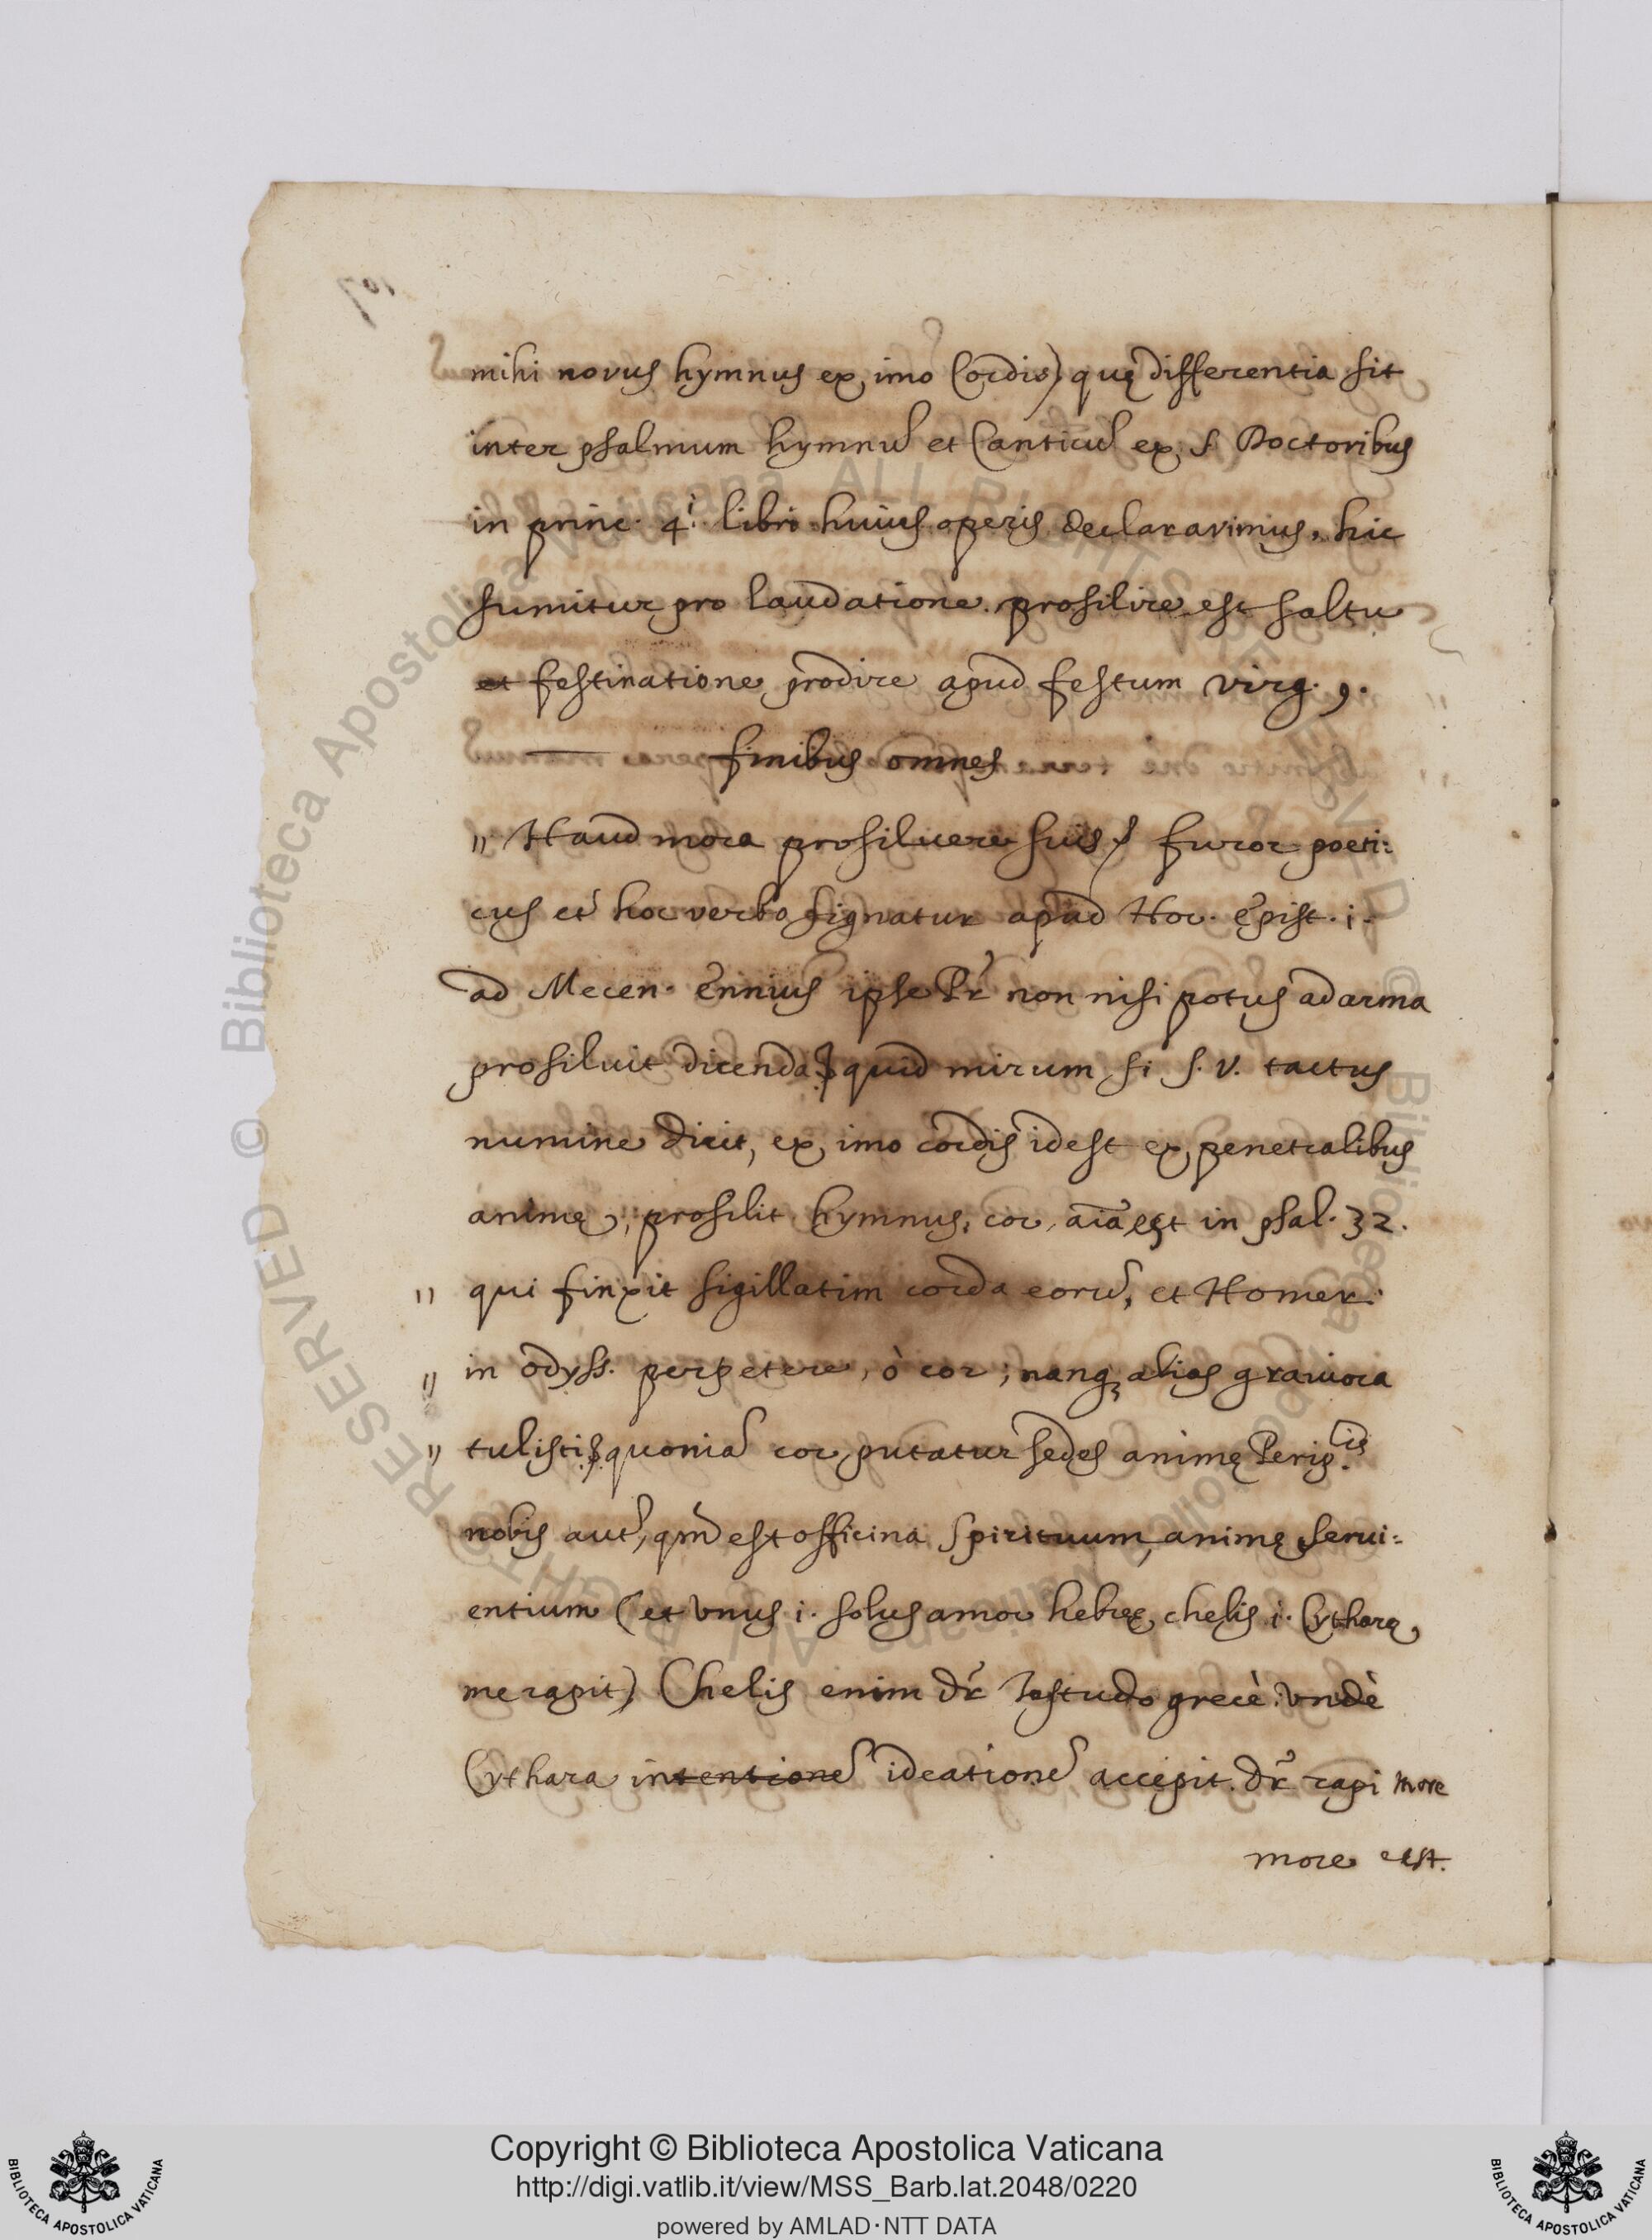 mihi novus hymnus ex imo Cordis) quę differentia sit
inter psalmum hymnũ et Canticũ ex S. Doctoribus
in princ. 4.i libri huius operis declaravimus, hic
sumitur pro laudatione. prosilire est saltu
et festinatione prodire apud festum virg. 9.
finibus omnes
" Haud mora prosiluere suis furor poeti:
cus et hoc verbo signatur apud Hor. Epist. i.
ad Mecen. Ennius ipse Pr̃ non nisi potus ad arma
prosiluit dicenda quid mirum si S. V. tactus
numine dicit, ex imo cordis idest ex penetralibus
animę, prosilit hymnus, cor, aĩa est in psal. 32.
" qui finxit sigillatim corda eorũ, et Homer.
" in odyss. perpetere, ò cor; nanq; alias graviora
" tulisti quoniã cor putatur sedes animę Perip.cis
nobis aut̃, qm̃ est officina spirituum, animę servi:
entium (et vnus i. solus amor hebrę chelis i. Cytharę
me rapit) Chelis enim dr̃ Testudo grecè. vndè
Cythara intentionẽ ideationẽ accepit. dr̃ rapi more
more est.
Copyright © Biblioteca Apostolica Vaticana
http://digi.vatlib.it/view/MSS_Barb.lat.2048/0220
powered by AMLAD·NTT DATA
BIBLIOTECA APOSTOLICA VATICANA
BIBLIOTECA APOSTOLICA VATICANA